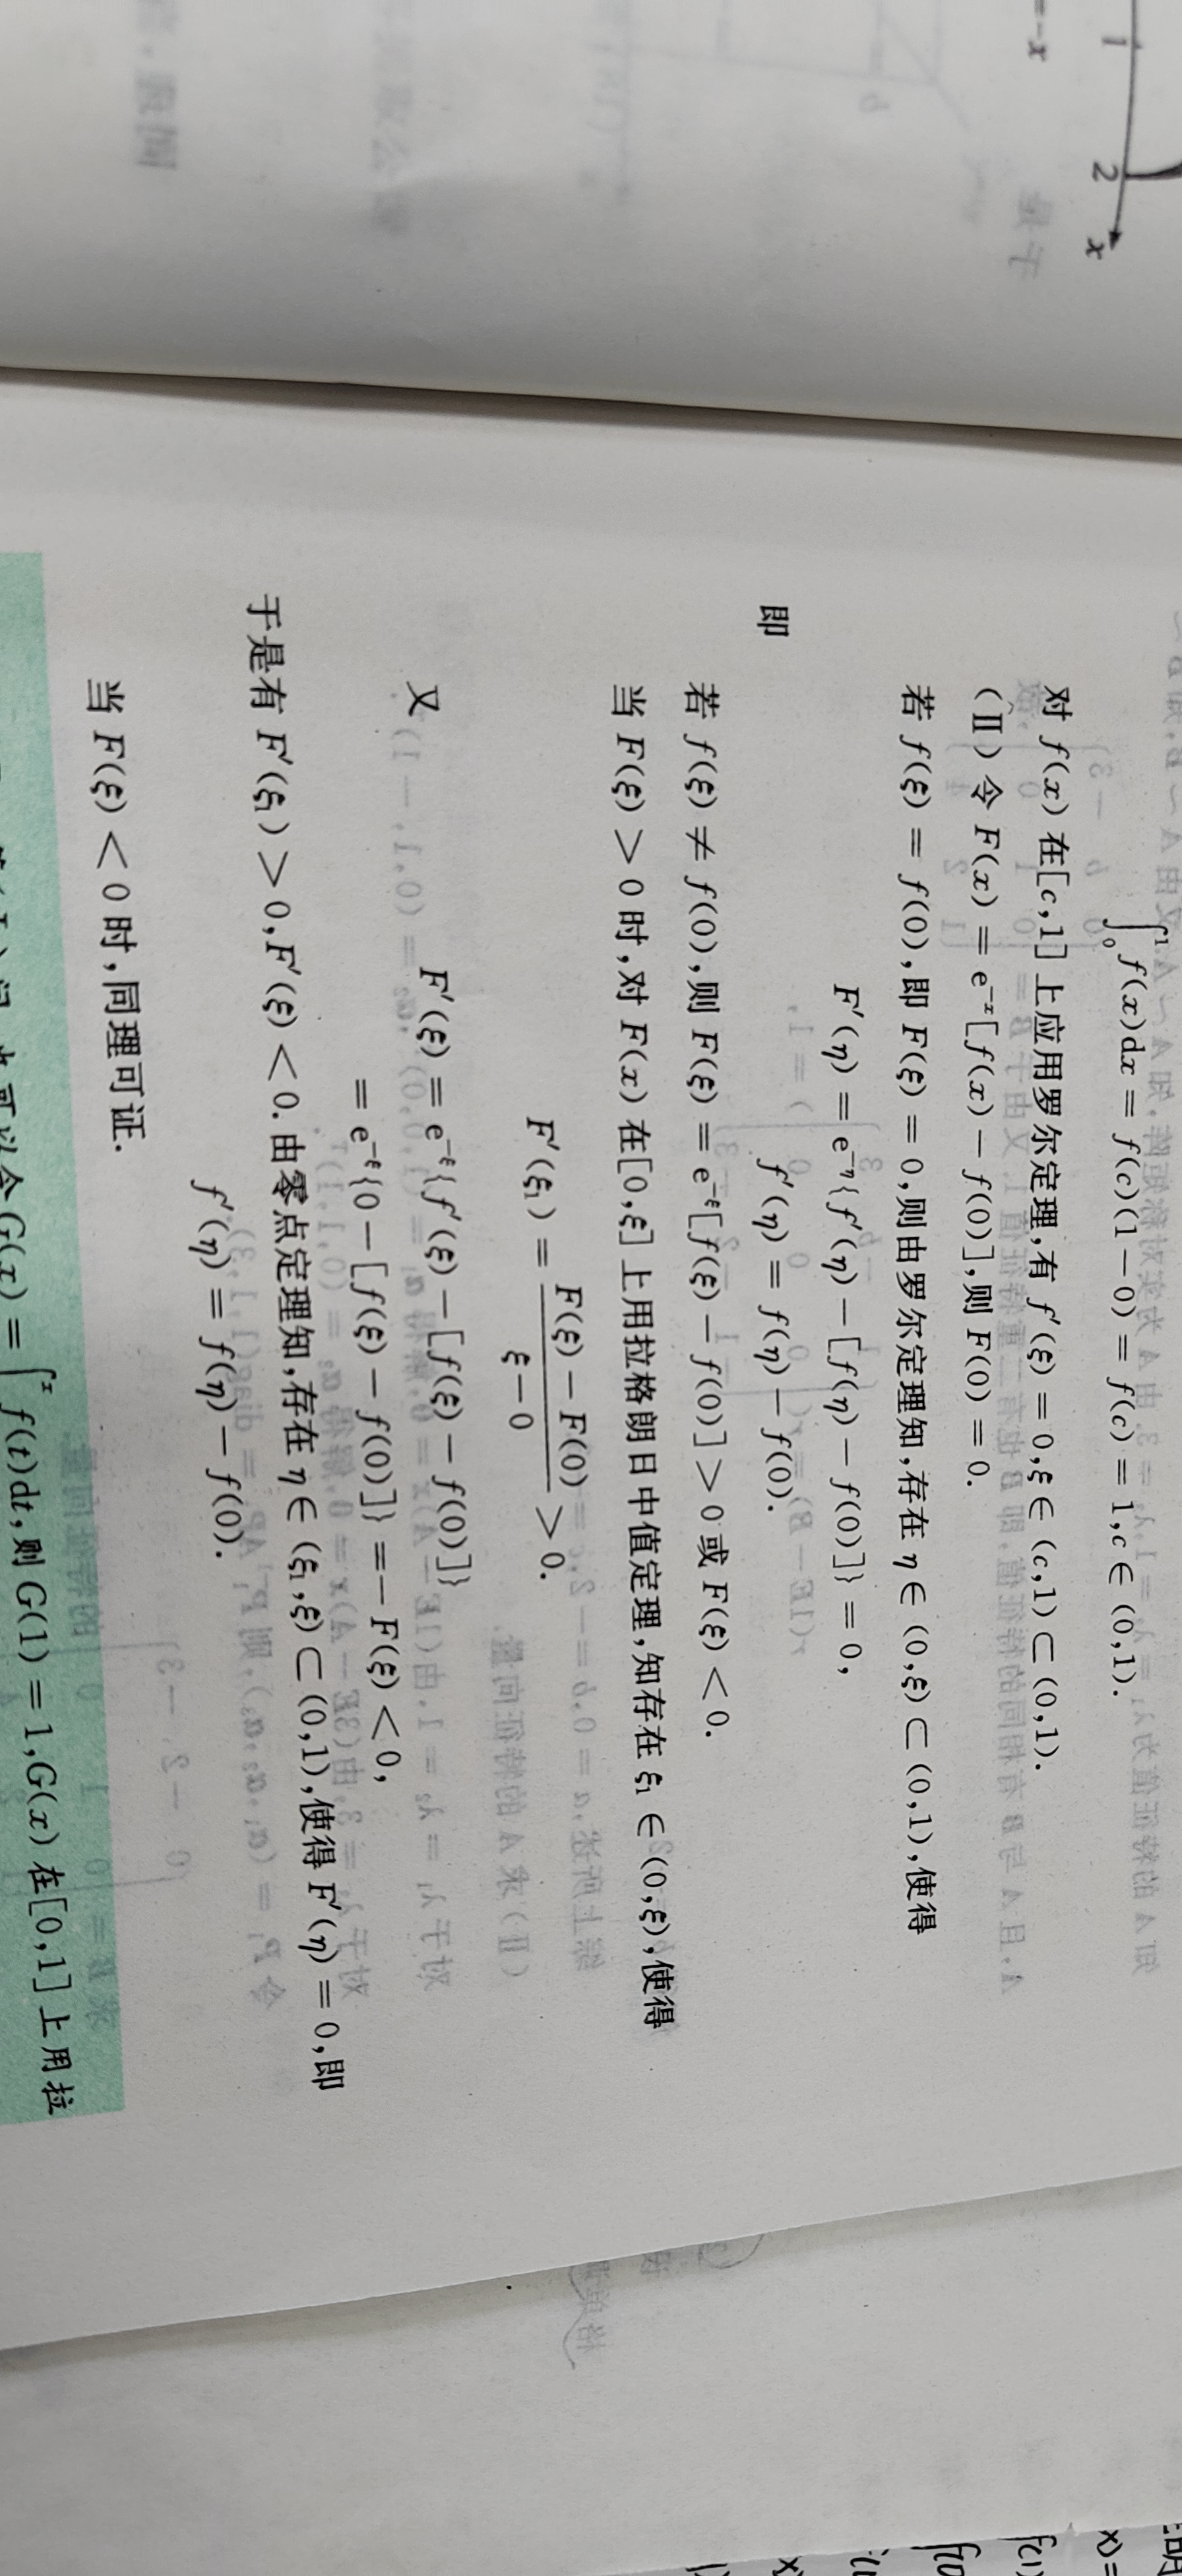 =-x
1
2
x
\int_0^1 f(x)dx = f(c)(1-0) = f(c) = 1, c ∈ (0,1).
对 f(x) 在[c,1] 上应用罗尔定理,有 f′(ξ) = 0, ξ ∈ (c,1) ⊂ (0,1).
(Ⅱ) 令 F(x) = e^{-x}[f(x) - f(0)],则 F(0) = 0.
若 f(ξ) = f(0),即 F(ξ) = 0,则由罗尔定理知,存在 η ∈ (0,ξ) ⊂ (0,1),使得
F′(η) = e^{-η}{f′(η) - [f(η) - f(0)]} = 0,
即 f′(η) = f(η) - f(0).
若 f(ξ) ≠ f(0),则 F(ξ) = e^{-ξ}[f(ξ) - f(0)] > 0 或 F(ξ) < 0.
当 F(ξ) > 0 时,对 F(x) 在[0,ξ] 上用拉格朗日中值定理,知存在 ξ₁ ∈ (0,ξ),使得
F′(ξ₁) = \frac{F(ξ) - F(0)}{ξ - 0} > 0.
又 F′(ξ) = e^{-ξ}{f′(ξ) - [f(ξ) - f(0)]}
= e^{-ξ}{0 - [f(ξ) - f(0)]} = - F(ξ) < 0,
于是有 F′(ξ₁) > 0, F′(ξ) < 0. 由零点定理知,存在 η ∈ (ξ₁,ξ) ⊂ (0,1),使得 F′(η) = 0,即
f′(η) = f(η) - f(0).
当 F(ξ) < 0 时,同理可证.
可以令 G(x) = \int^x f(t)dt,则 G(1) = 1,G(x) 在[0,1] 上用拉